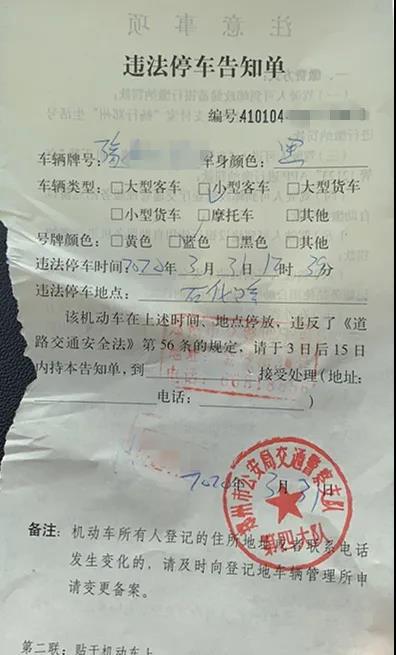 违法停车告知单
编号：410104
车辆牌号： 车身颜色：黑
车辆类型：□大型客车 □小型客车 □大型货车
□小型货车 □摩托车 □其他
号牌颜色：□黄色 □蓝色 □黑色 □其他
违法停车时间2020年3月31日 时39分
违法停车地点：石化路
该机动车在上述时间、地点停放，违反了《道
路交通安全法》第56条的规定，请于3日后15日
内持本告知单，到 接受处理（地址：
电话： ）
2020年3月31日
郑州市公安局交通警察支队
备注：机动车所有人登记的住所地址或者联系电话
发生变化的，请及时向登记地车辆管理所申
请变更备案。
第二联：贴于机动车上